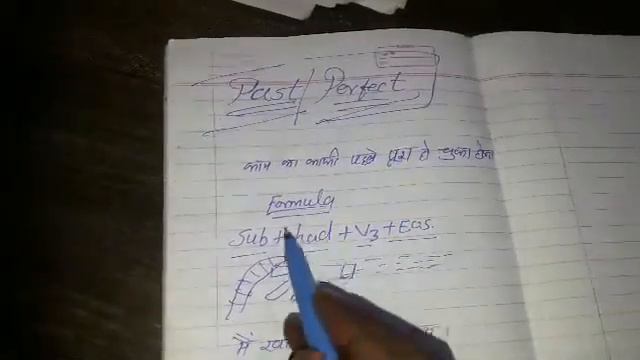 Past Perfect
काम का काफी पहले पूरा हो चुका होना
Formula
Sub + had + V3 + Eas.
मैं